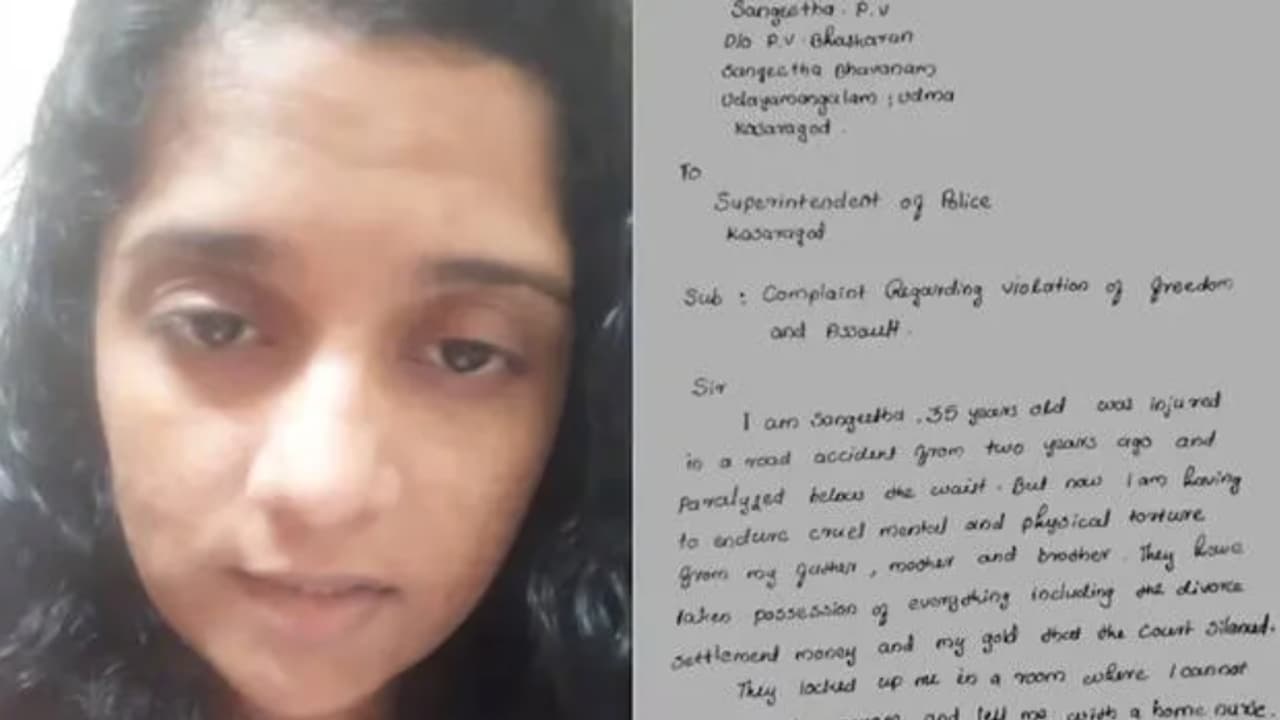 Sangeetha. P.V
D/o P.V. Bhaskaran
Sangeetha Bhavanam
Udayamangalam ; udma
Kasaragod.
To
Superintendent of Police
Kasaragod
Sub : Complaint Regarding violation of freedom
and Assault.
Sir
I am Sangeetha, 35 years old was injured
in a road accident from two years ago and
Paralyzed below the waist. But now I am having
to endure cruel mental and physical torture
from my father, mother and brother. They have
taken possession of everything including the divorce
settlement money and my gold that the Court
They locked up me in a room where I cannot
and left me with a home nurse.